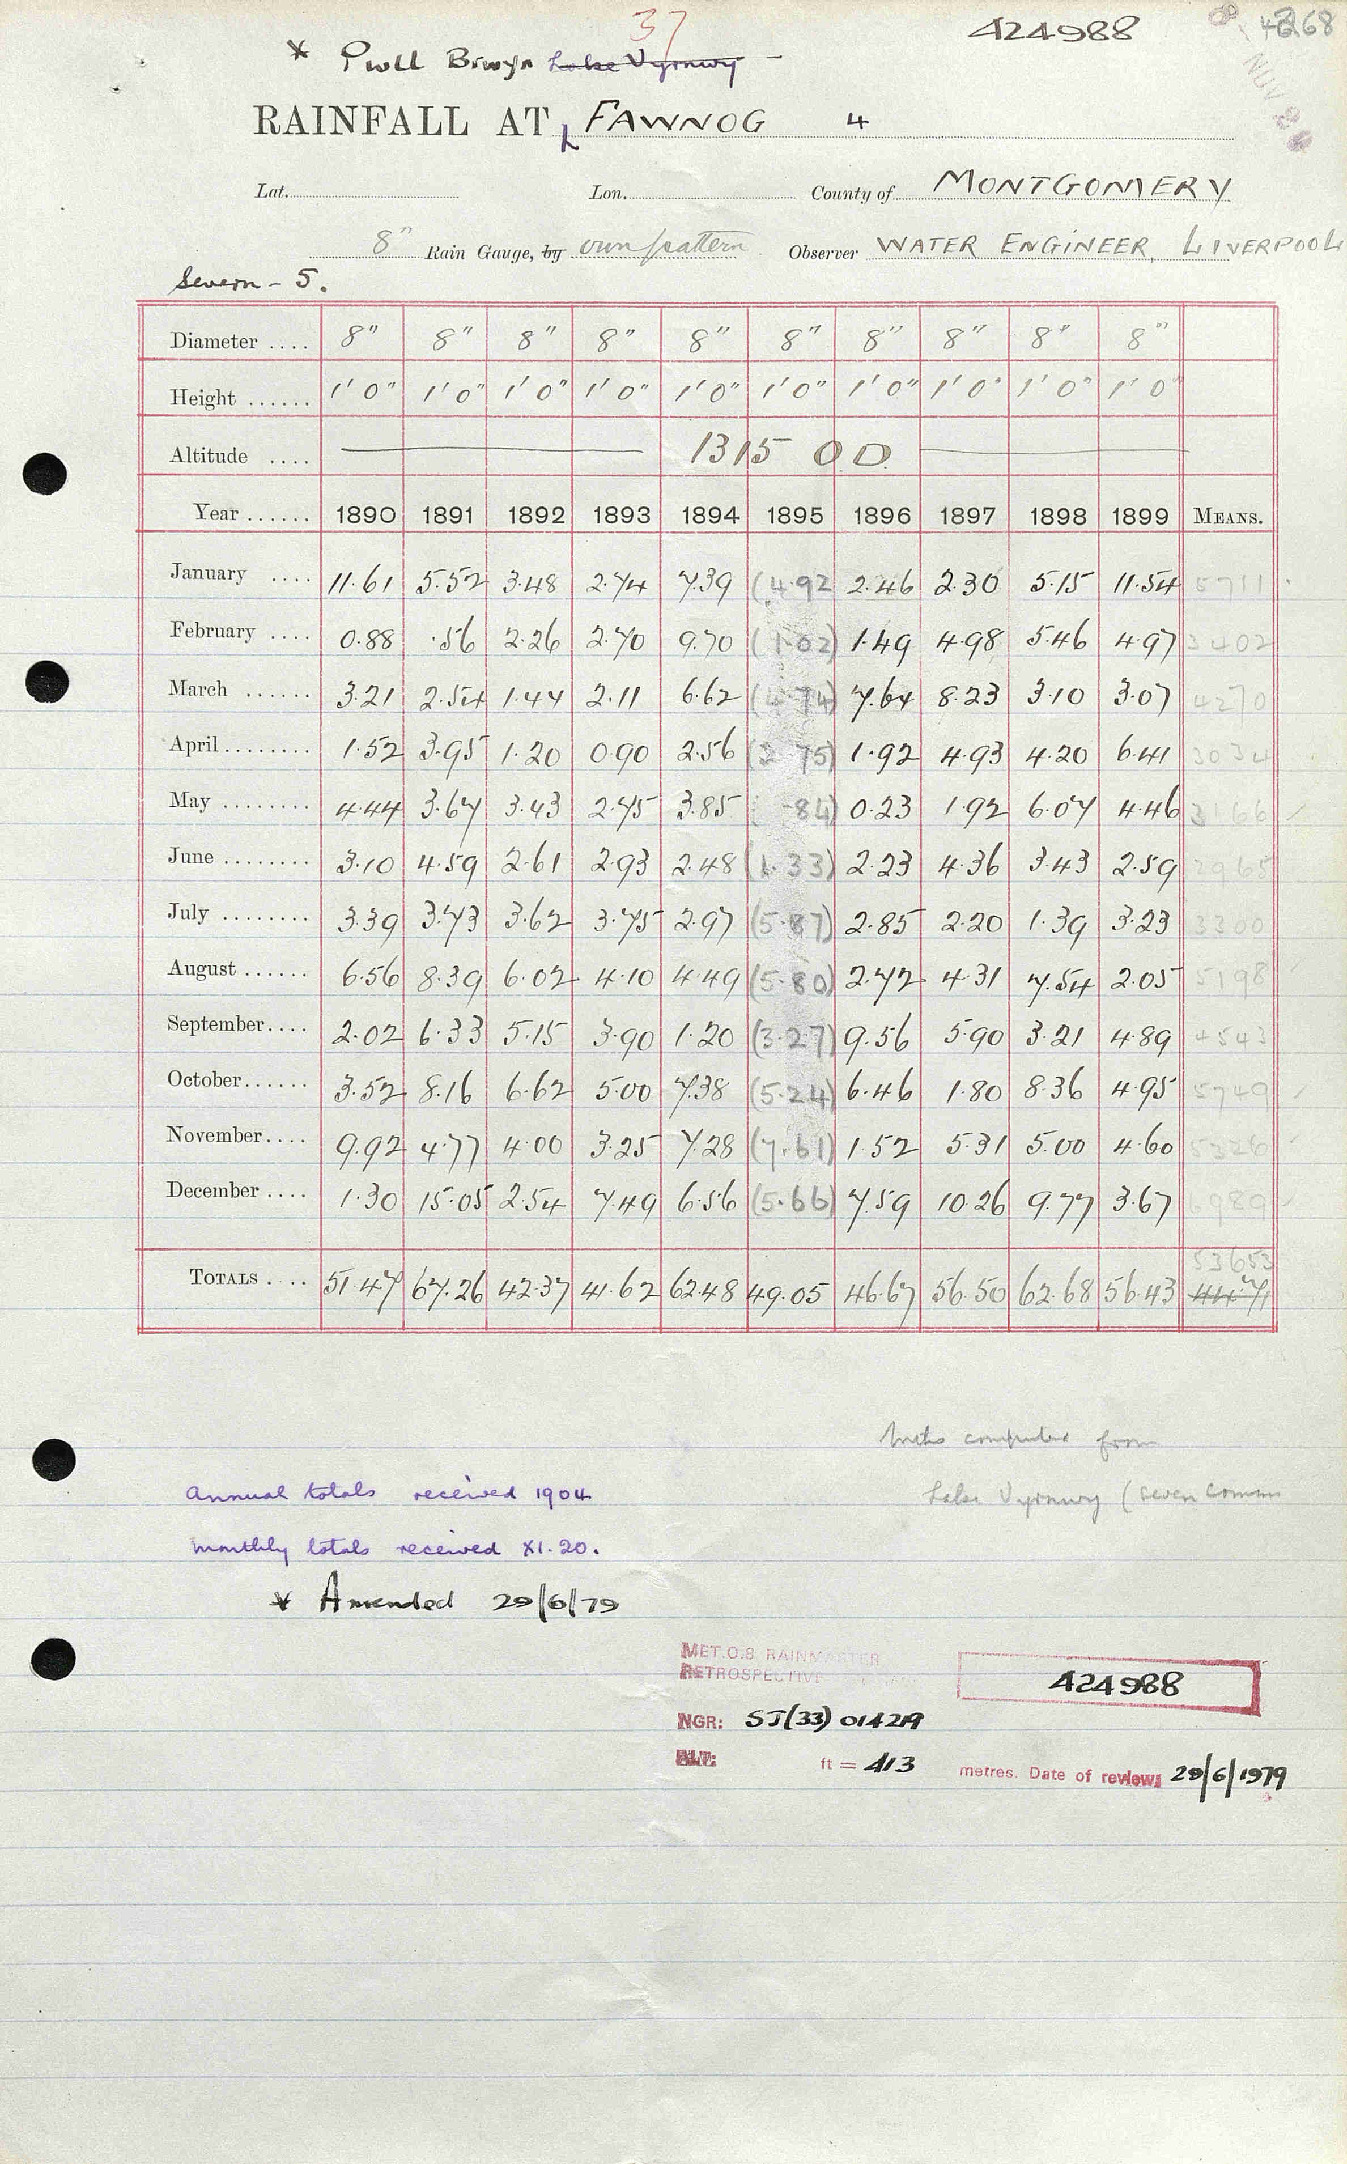 37
424988
* Pwll Brwyn Lake Vyrnwy
RAINFALL AT FAWNOG 4
Lat. Lon. County of MONTGOMERY
8" Rain Gauge, by own pattern Observer WATER ENGINEER, LIVERPOOL
Severn - 5.
Diameter .... 8" 8" 8" 8" 8" 8" 8" 8" 8" 8"
Height ...... 1'0" 1'0" 1'0" 1'0" 1'0" 1'0" 1'0" 1'0" 1'0" 1'0"
Altitude .... 1315 O.D.
Year ...... 1890 1891 1892 1893 1894 1895 1896 1897 1898 1899 MEANS.
January .... 11.61 5.52 3.48 2.74 7.39 (4.92 2.46 2.30 5.15 11.54 5711
February .... 0.88 .56 2.26 2.70 9.70 (1.02) 1.49 4.98 5.46 4.97 3402
March ...... 3.21 2.54 1.44 2.11 6.62 (4.74) 7.64 8.23 3.10 3.07 4270
April ........ 1.52 3.95 1.20 0.90 2.56 (2.75) 1.92 4.93 4.20 6.41 3034
May ........ 4.44 3.67 3.43 2.75 3.85 .84) 0.23 1.92 6.07 4.46 3166
June ........ 3.10 4.59 2.61 2.93 2.48 (1.33) 2.23 4.36 3.43 2.59 2965
July ........ 3.39 3.73 3.62 3.75 2.97 (5.87) 2.85 2.20 1.39 3.23 3300
August ...... 6.56 8.39 6.02 4.10 4.49 (5.80) 2.72 4.31 7.54 2.05 5198
September.... 2.02 6.33 5.15 3.90 1.20 (3.27) 9.56 5.90 3.21 4.89 4543
October...... 3.52 8.16 6.62 5.00 7.38 (5.24) 6.46 1.80 8.36 4.95 5749
November.... 9.92 4.77 4.00 3.25 7.28 (7.61) 1.52 5.31 5.00 4.60 5326
December .... 1.30 15.05 2.54 7.49 6.56 (5.66) 7.59 10.26 9.77 3.67 6989
53653
TOTALS .... 51.47 67.26 42.37 41.62 62.48 49.05 46.67 56.50 62.68 56.43 44.71
Mths computed from
Lake Vyrnwy (Severn Comm
Annual totals received 1904
Monthly totals received XI.20.
* Amended 29/6/79
MET.O.8 RAINMASTER
RETROSPECTIVE
424988
NGR: SJ(33) 014219
ALT: ft = 413 metres. Date of review: 29/6/1979